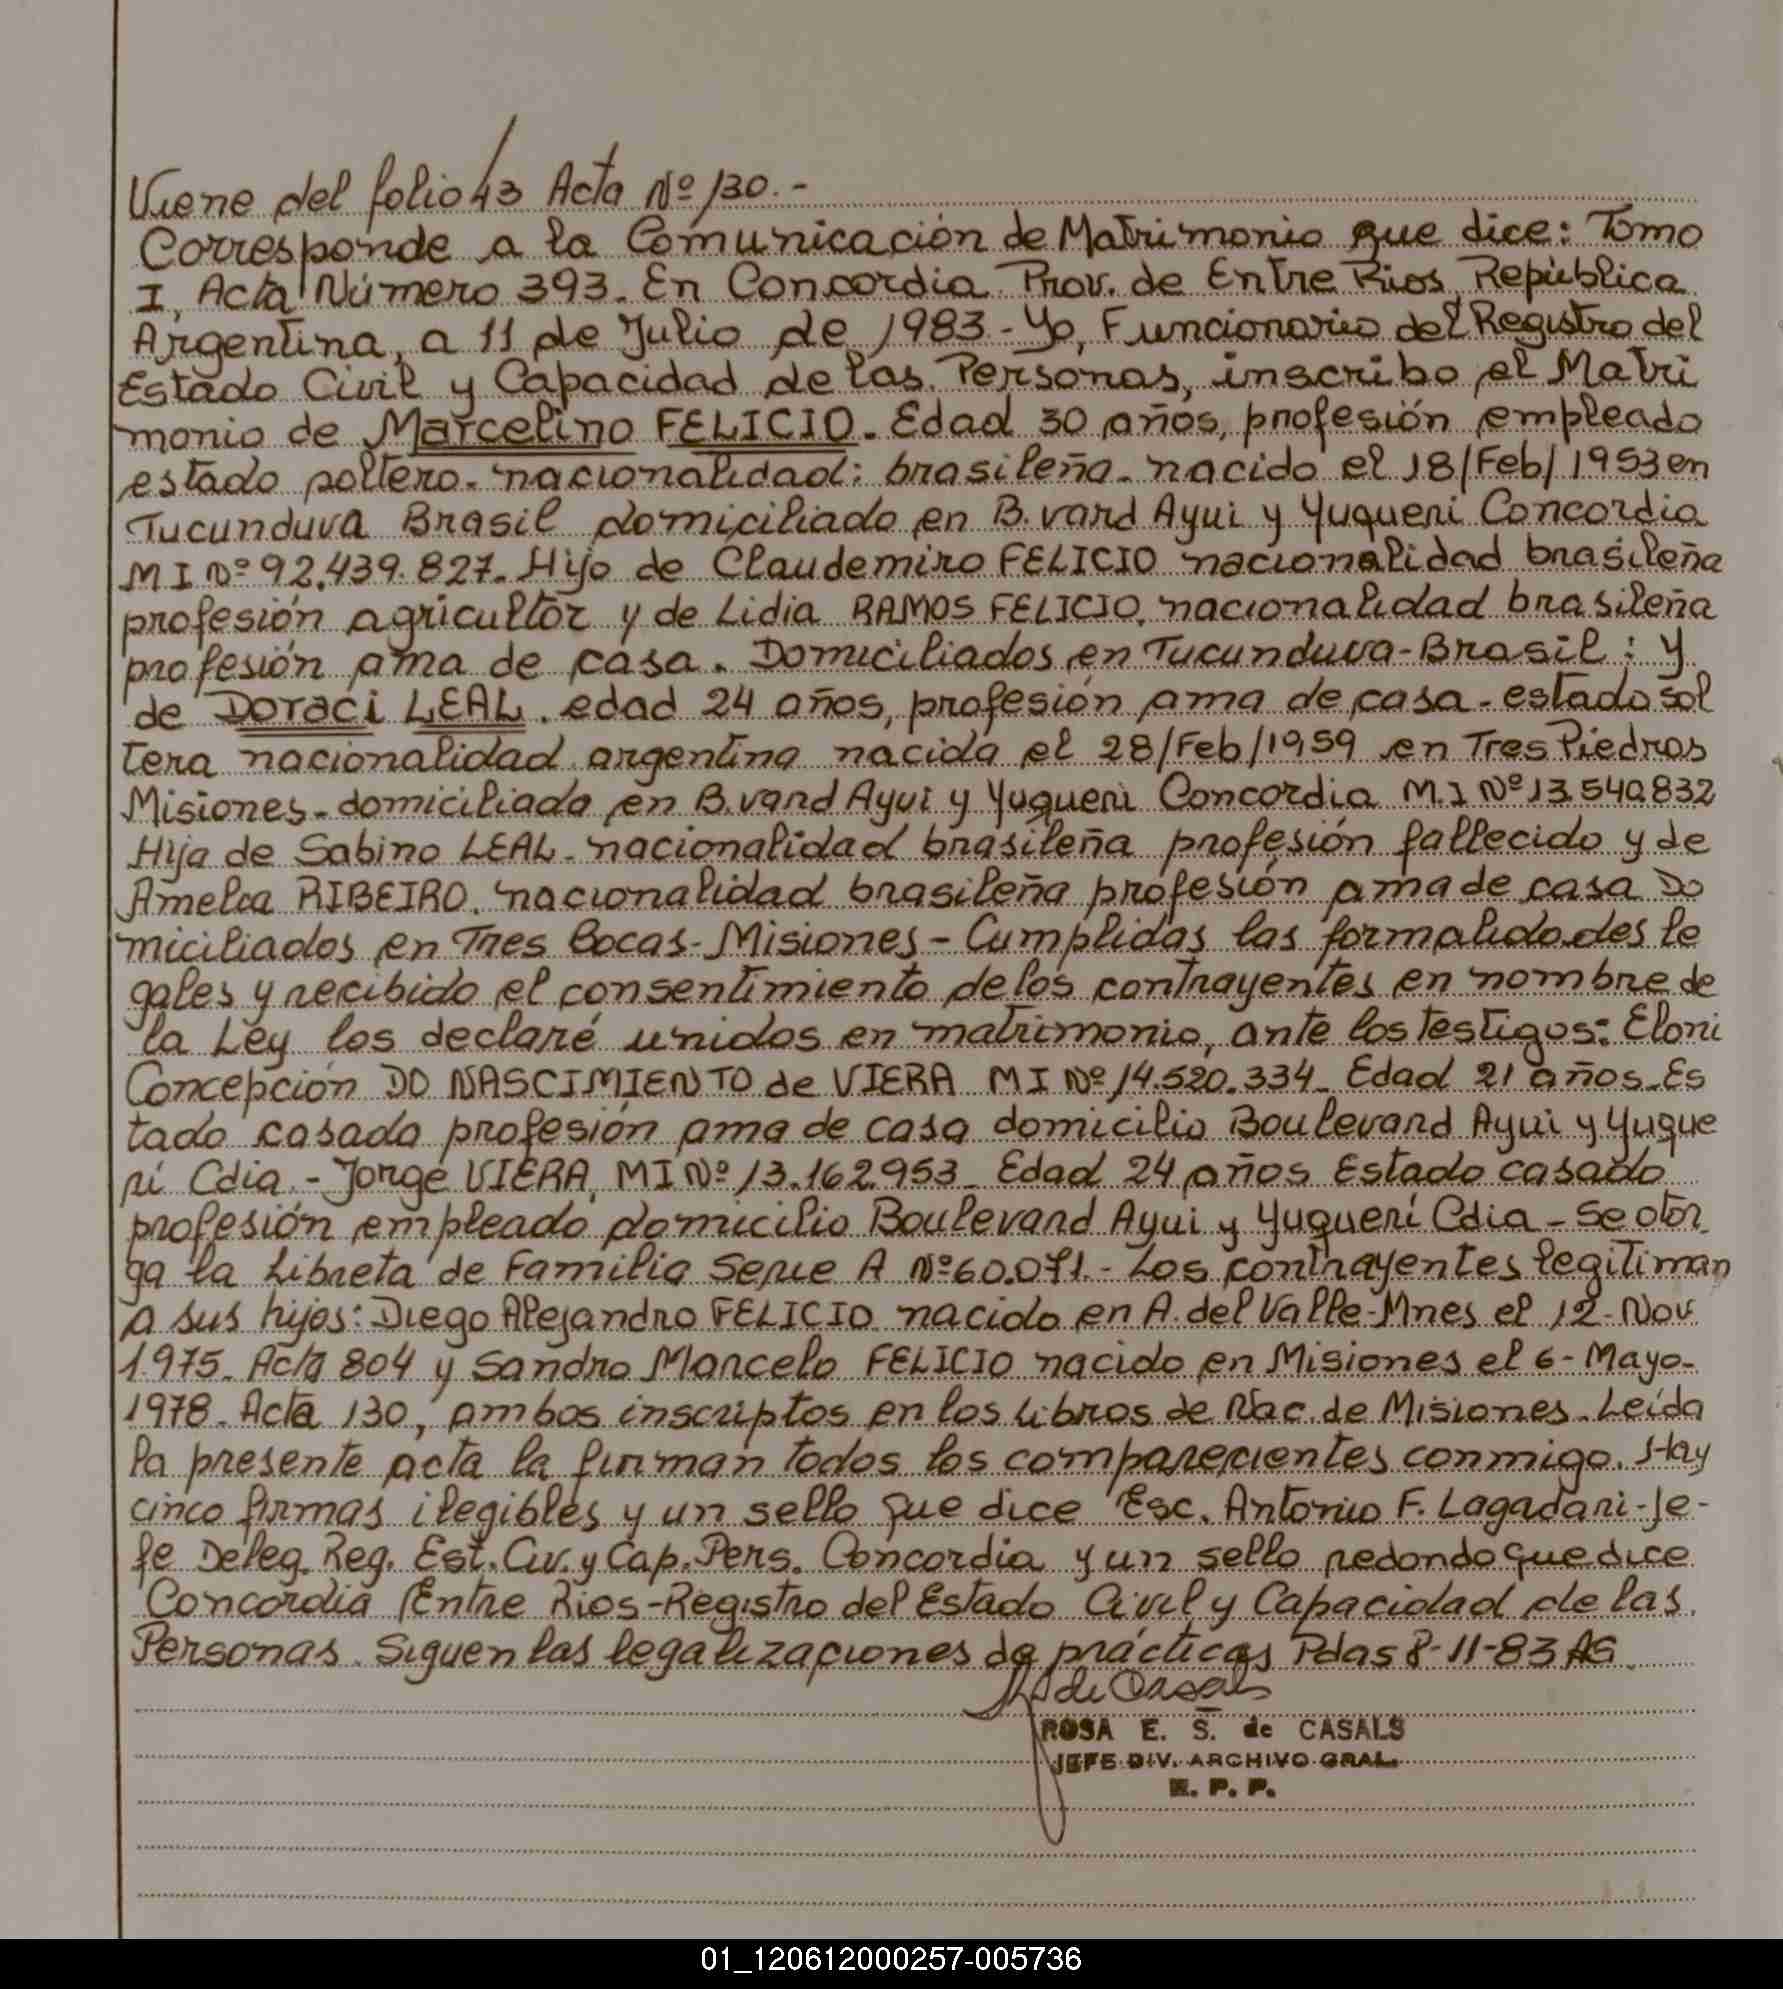 Viene del folio 43 Acta Nº 130.-
Corresponde a la Comunicación de Matrimonio que dice: Tomo
I, Acta Número 393. En Concordia Prov. de Entre Rios, República
Argentina, a 11 de Julio de 1983.- Yo, Funcionario del Registro del
Estado Civil y Capacidad de las Personas, inscribo el Matri
monio de Marcelino FELICIO. Edad 30 años, profesión empleado
estado soltero. nacionalidad: brasileña. nacido el 18/Feb/1953 en
Tucunduva Brasil domiciliado en B.vard Ayui y Yuqueri Concordia
M I Nº 92.439.827. Hijo de Claudemiro FELICIO nacionalidad brasileña
profesión agricultor y de Lidia RAMOS FELICIO, nacionalidad brasileña
profesión ama de casa. Domiciliados en Tucunduva-Brasil; y
de Doraci LEAL. edad 24 años, profesión ama de casa. estado sol
tera nacionalidad argentina nacida el 28/Feb/1959 en Tres Piedras
Misiones. domiciliada en B.vard Ayui y Yuqueri Concordia M.I Nº 13.540.832
Hija de Sabino LEAL. nacionalidad brasileña profesión fallecido y de
Amelia RIBEIRO. nacionalidad brasileña profesión ama de casa Do
miciliados en Tres Bocas-Misiones- Cumplidas las formalidades le
gales y recibido el consentimiento de los contrayentes en nombre de
la Ley los declaré unidos en matrimonio, ante los testigos: Eloni
Concepción DO NASCIMIENTO de VIERA MI Nº 14.520.334. Edad 21 años. Es
tado casada profesión ama de casa domicilio Boulevard Ayui y Yuque
ri Cdia.- Jorge VIERA, MI Nº 13.162.953. Edad 24 años Estado casado
profesión empleado domicilio Boulevard Ayui y Yuquerí Cdia - Se otor
ga la Libreta de Familia Serie A Nº 60.071.- Los contrayentes legitiman
a sus hijos: Diego Alejandro FELICIO nacido en A. del Valle-Mnes el 12-Nov
1.975. Acta 804 y Sandro Marcelo FELICIO nacido en Misiones el 6-Mayo-
1978. Acta 130, ambos inscriptos en los Libros de Nac. de Misiones. Leída
la presente acta la firman todos los comparecientes conmigo. Hay
cinco firmas ilegibles y un sello que dice Esc. Antonio F. Lagadari-Je-
fe Deleg. Reg. Est. Civ. y Cap. Pers. Concordia y un sello redondo que dice
Concordia Entre Rios-Registro del Estado Civil y Capacidad de las
Personas. Siguen las legalizaciones de prácticas Pdas 8-11-83 AG
ROSA E. S. de CASALS
JEFE DIV. ARCHIVO GRAL.
R. P. P.
01_120612000257-005736